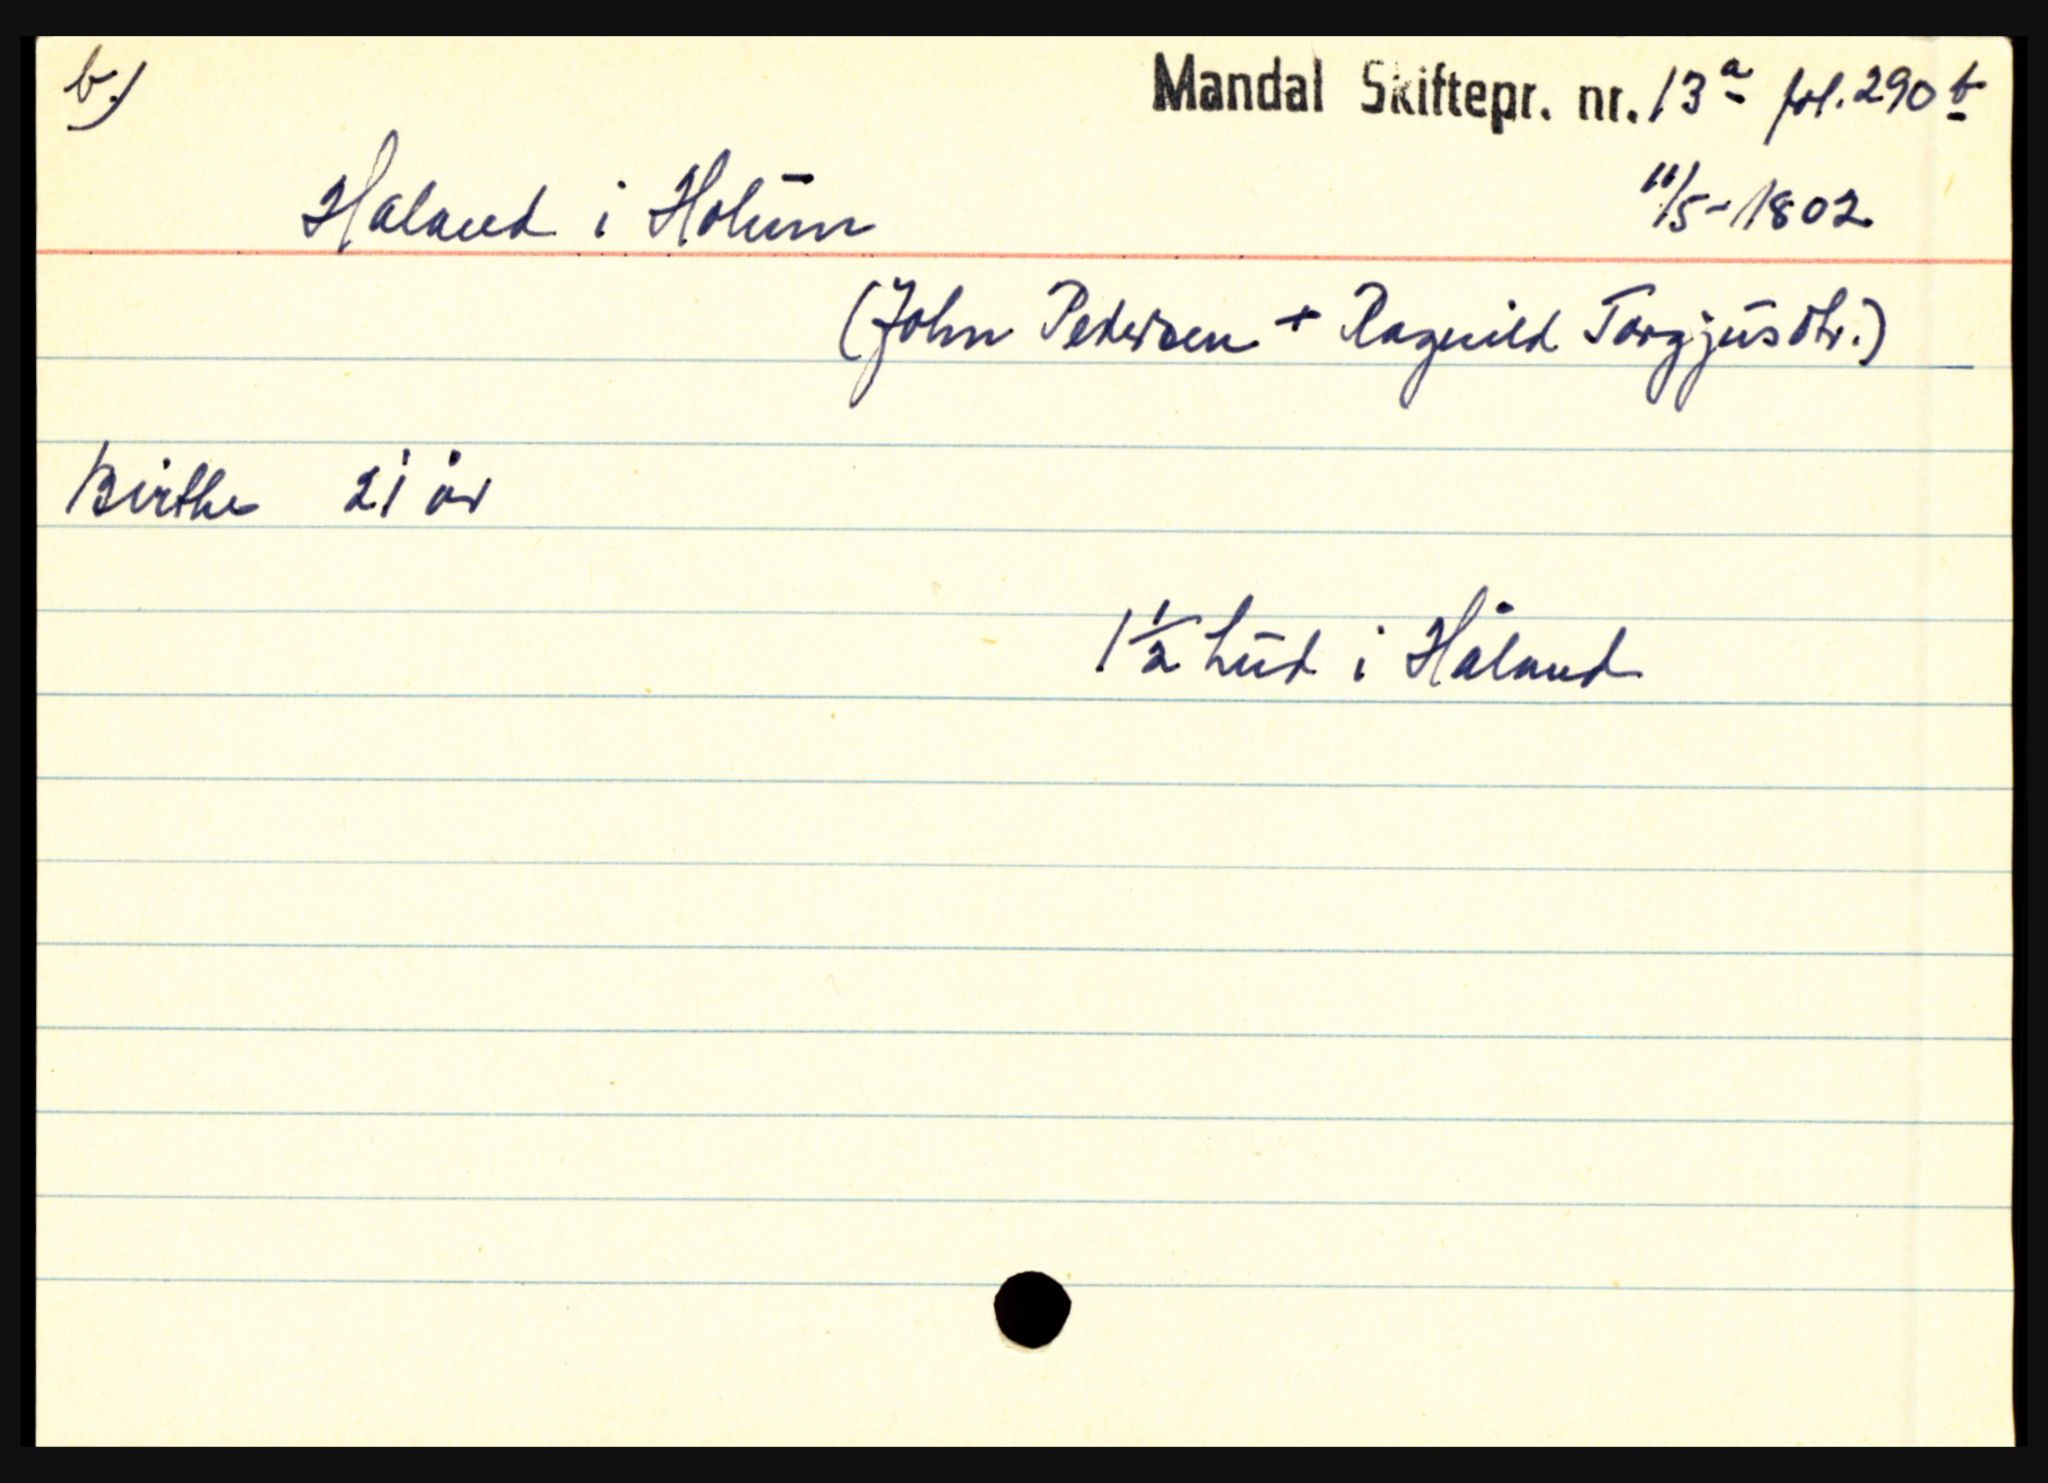 b.)
Mandal Skiftepr. nr. 13a fol. 290b
Haland i Holum 11/5-1802
(John Pedersen + Ragnild Torgjusdtr.)
Birthe 21 år
1 1/2 hud i Håland